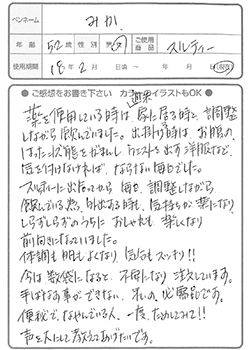 ペンネーム みか
年齢 52歳 性別 男・女 ご使用商品 スルティー
使用期間 18年2月 日頃 ~ (現在)
●ご感想をお書き下さい カラー、イラストもOK●
薬を使用している時は、家に居る時と、調整
しながら飲んでいました。出掛ける時は、お腹の
はった状態をがまんし ウエストを出す洋服など、
気を付けなければ、ならない毎日でした。
スルティーに出逢ってから 毎日、調整しながら
飲んでいる為、外出する時、気持ちが楽になり
しらずしらずのうちに おしゃれも 楽しくなり
前向きになっていました。
体調も 肌もよくなり、気分もスッキリ!!
今は 数袋になると、不安になり 注文しています。
手ばなす事ができない、私の必需品です。
便秘で、なやんでいる人、一度、ためしてみて!!
声を大にして教えてあげたいです。